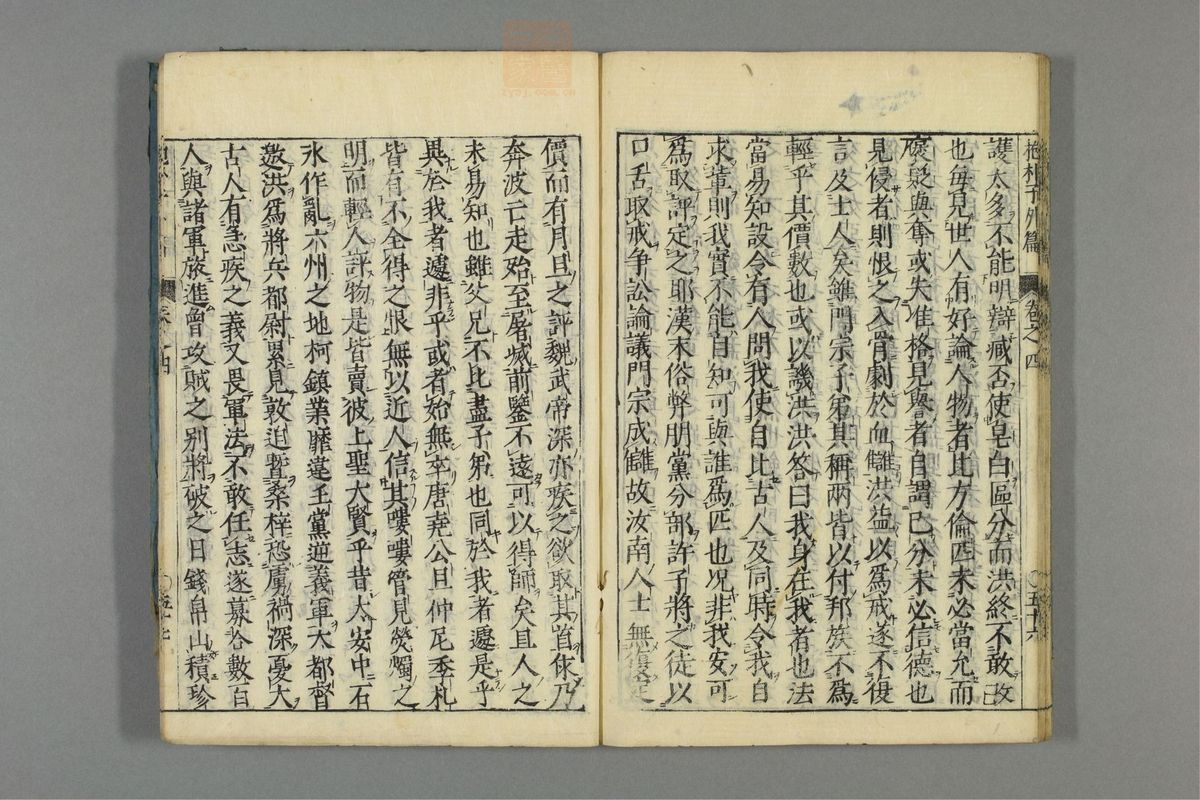 抱朴子外篇 卷之四 五十六
護太多不能明辯臧否使皂白區分而洪終不敢改
也每見世人有好論人物者比方倫匹未必當允而
褒貶與奪或失准格見譽者自謂已分未必信德也
見侵者則恨之入骨劇於血讎洪益以爲戒遂不復
言及士人矣雖門宗子弟其稱兩皆以付邦族不爲
輕乎其價數也或以譏洪洪答曰我身在我者也法
當易知設令有人問我使自比古人及同時令我自
求輩則我實不能自知可與誰爲匹也况非我安可
爲取評定之耶漢末俗弊朋黨分部許子將之徒以
口舌取戒争訟論議門宗成讎故汝南人士無復定
價而有月旦之評魏武帝深亦疾之欲取其首俅乃
奔波亡走殆至屠滅前鑒不遠可以得師矣且人之
未易知也雖父兄不比盡子弟也同於我者遽是乎
異於我者遽非乎或者始無卒唐堯公旦仲尼季札
皆有不全得之恨無以近人信其嘍嘍管見熒燭之
明而輕人評物是皆賣彼上聖大賢乎昔太安中石
氷作亂六州之地柯鎮業靡違王黨逆義軍大都督
邀洪爲將兵都尉累見敦迫暫桑梓恐虜禍深憂大
古人有急疾之義又畏軍法不敢任志遂募合數百
人與諸軍旅進曾攻賊之别將破之日錢帛山積珍
卷 四